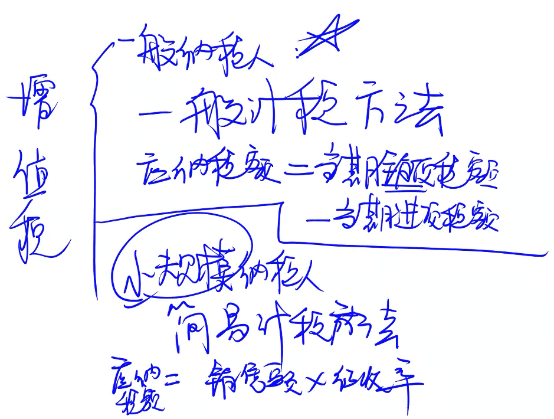 增值税
一般纳税人
一般计税方法
应纳税额=当期销项税额
-当期进项税额
小规模纳税人
简易计税方法
应纳税额=销售额×征收率